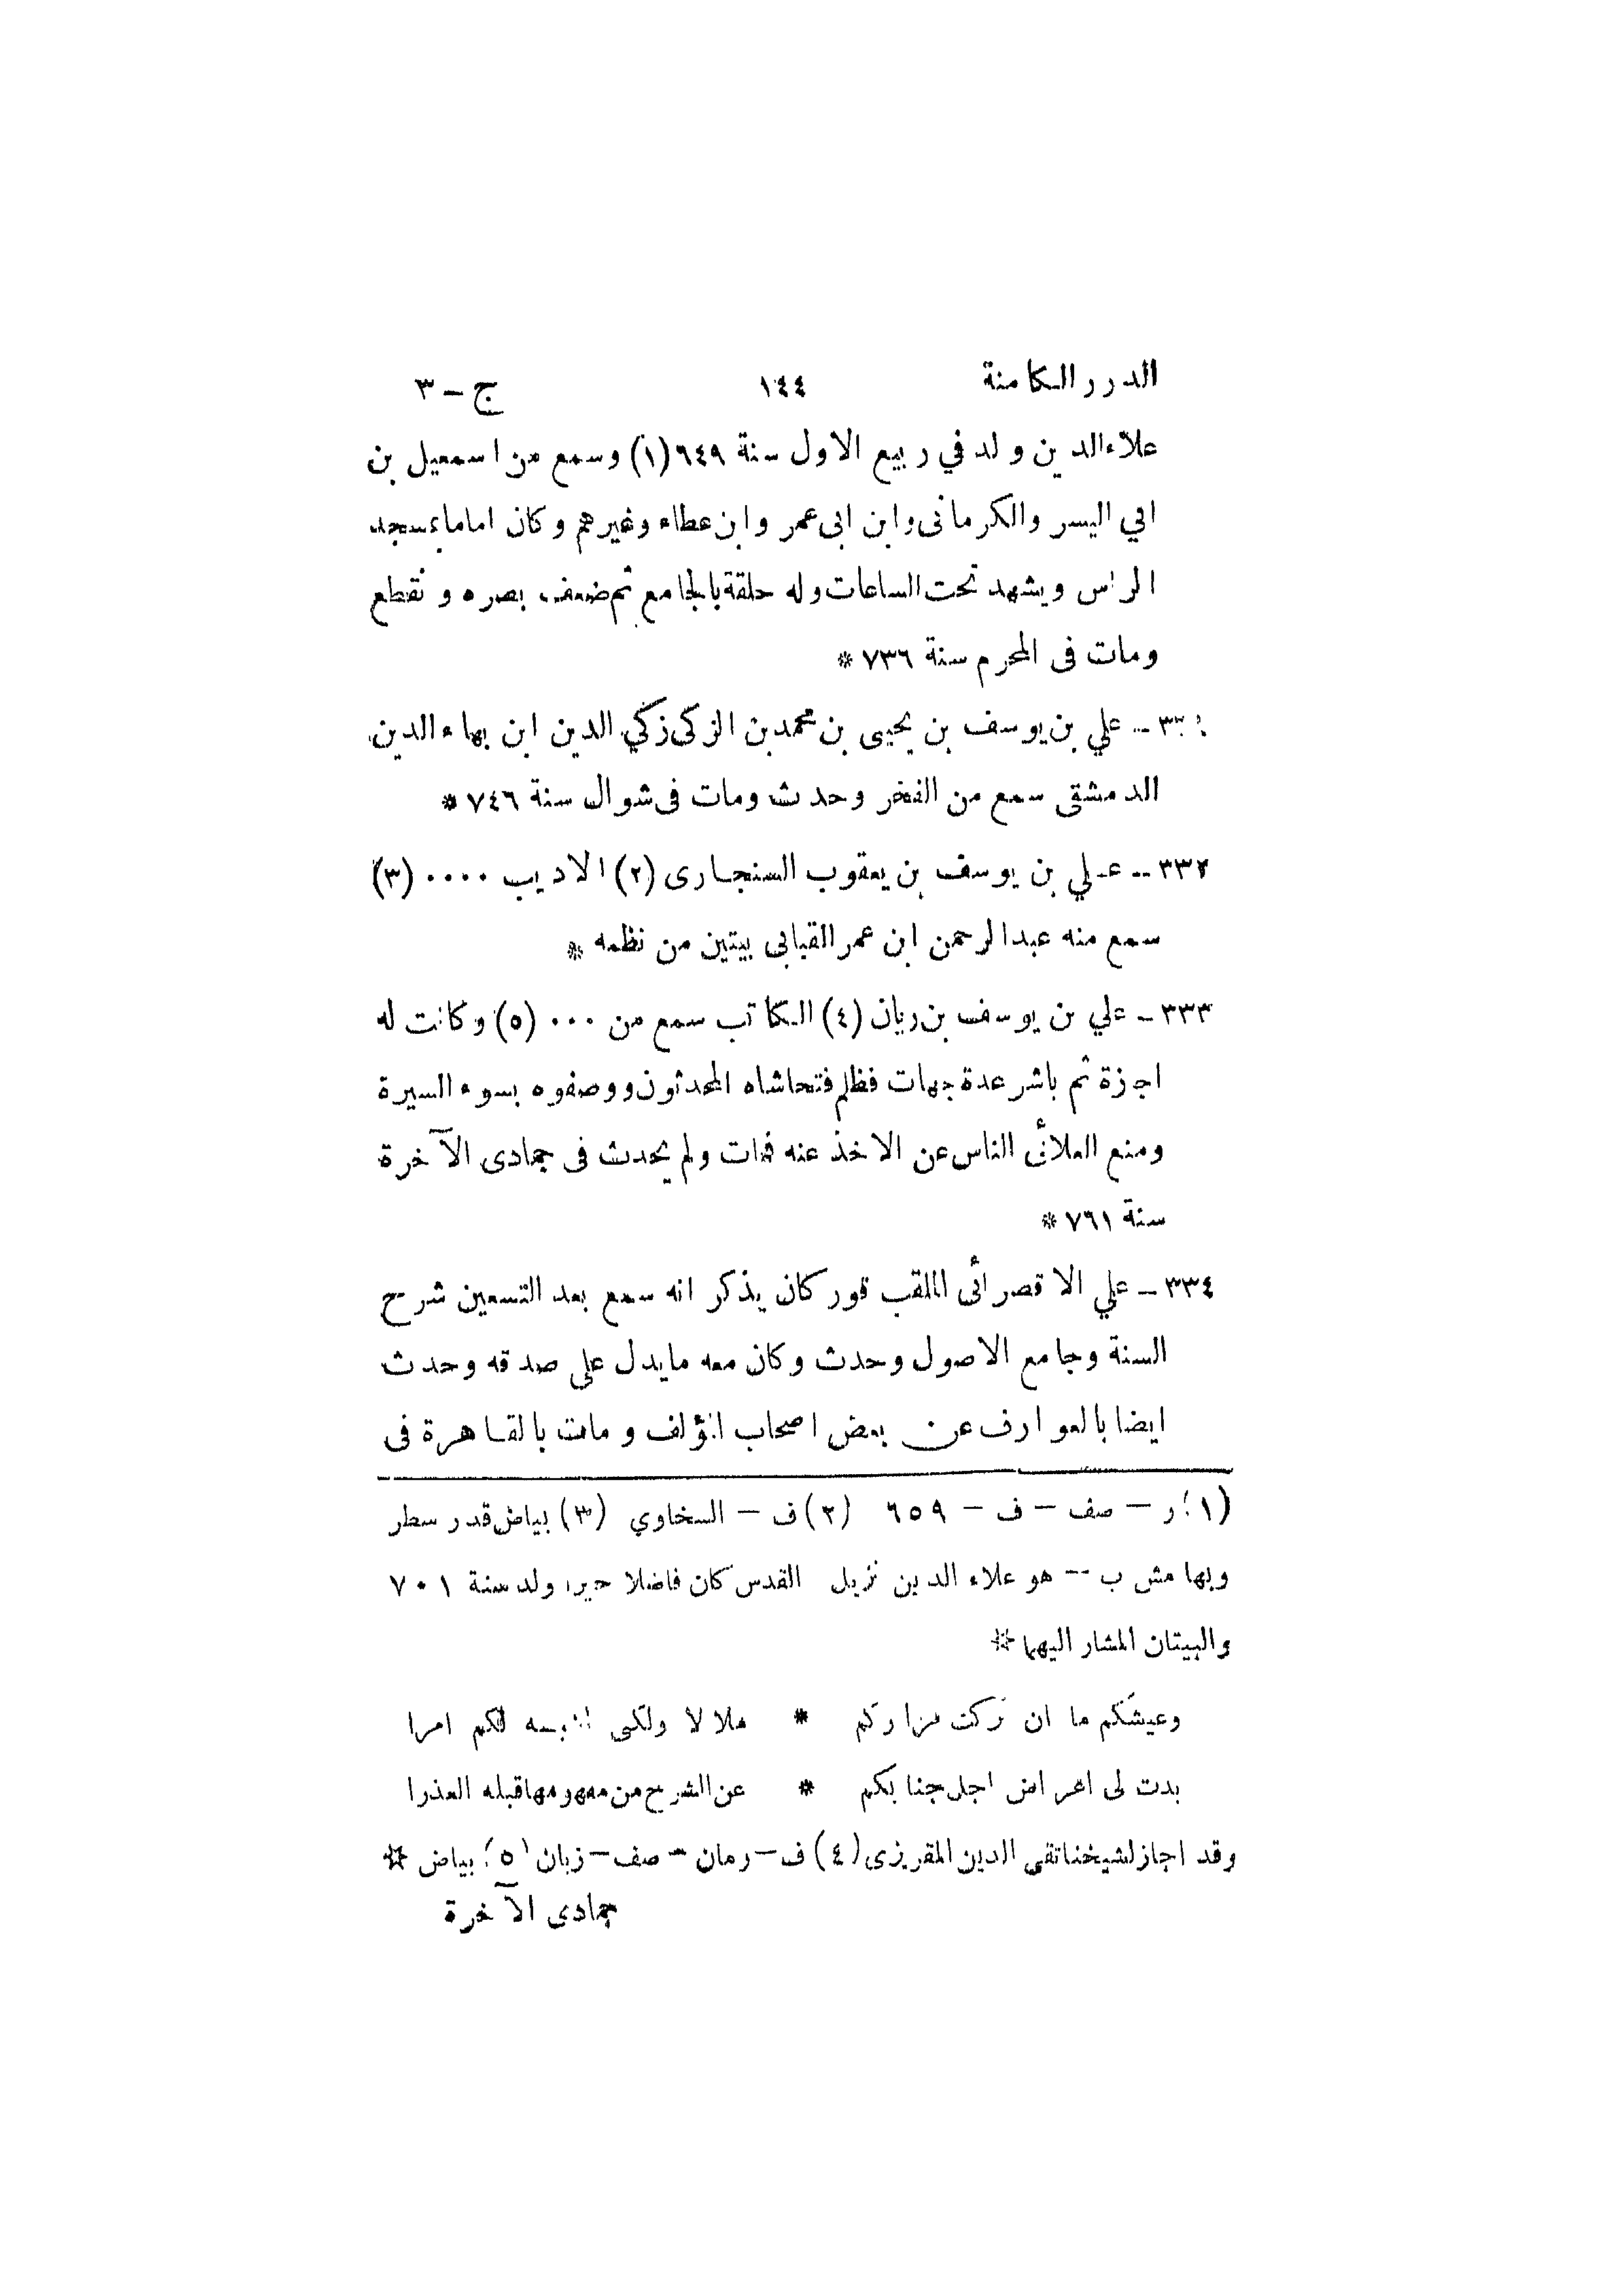 الدرر الكامنة ١٤٤ ج - ٣
علاء الدين ولد في ربيع الاول سنة ٦٤٩ (١) وسمع من اسمعيل بن
ابي اليسر والكرمانى وابن ابى عمر وابن عطاء وغيرهم وكان اماما بمسجد
الراس ويشهد تحت الساعات وله حلقة بالجامع ثم ضعف بصره و نقطع
ومات فى المحرم سنة ٧٣٦ *
٣٣١ - علي بن يوسف بن يحيى بن محمد بن الزكى زكي الدين ابن بهاء الدين
الدمشقى سمع من الفخر وحدث ومات فى شوال سنة ٧٤٦ *
٣٣٢ - علي بن يوسف بن يعقوب السنجارى (٢) الاديب ٠٠٠٠ (٣)
سمع منه عبدالرحمن ابن عمر القبابى بيتين من نظمه *
٣٣٣ - علي بن يوسف بن ريان (٤) الكاتب سمع من ٠٠٠ (٥) وكانت له
اجزة ثم باشر عدة جهات فظلم فتحاشاه المحدثون ووصفوه بسوء السيرة
ومنع العلائى الناس عن الاخذ عنه فمات ولم يحدث فى جمادى الآخرة
سنة ٧٦١ *
٣٣٤ - علي الاقصرائى الملقب قور كان يذكر انه سمع بعد التسعين شرح
السنة وجامع الاصول وحدث وكان معه مايدل على صدقه وحدث
ايضا بالعوارف عن بعض اصحاب المؤلف ومات بالقاهرة فى
(١) ر - صف - ف - ٦٥٩ (٢) ف - السخاوي (٣) بياض قدر سطر
وبهامش ب - هو علاء الدين نزيل القدس كان فاضلا خيرا ولد سنة ٧٠١
والبيتان المشار اليهما *
وعيشكم ما ان تركت مزاركم * ملالا ولكن لكم امرا
بدت لى اعراض اجل جنابكم * عن الشرح من مفهومها قبله العذرا
وقد اجاز لشيخنا تقى الدين المقريزى (٤) ف - رمان - صف - زبان (٥) بياض *
جمادى الآخرة